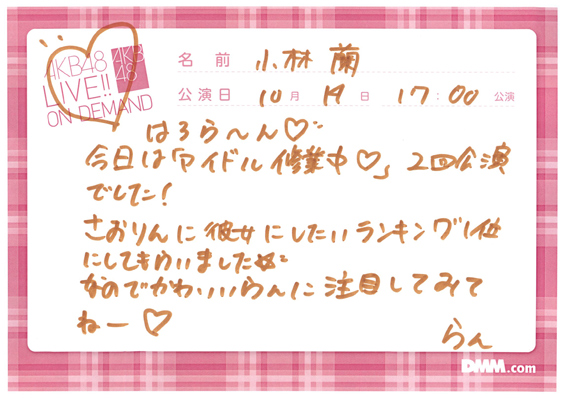 AKB48
LIVE!!
ON DEMAND
AKB
48
名前 小林 蘭
公演日 10月 19日 17:00 公演
はろら〜ん♡
今日は「アイドル修業中♡」2回公演
でした!
さおりんに彼女にしたいランキング1位
にしてもらいました☆
なのでかわいいらんに注目してみて
ねー♡
らん
DMM.com